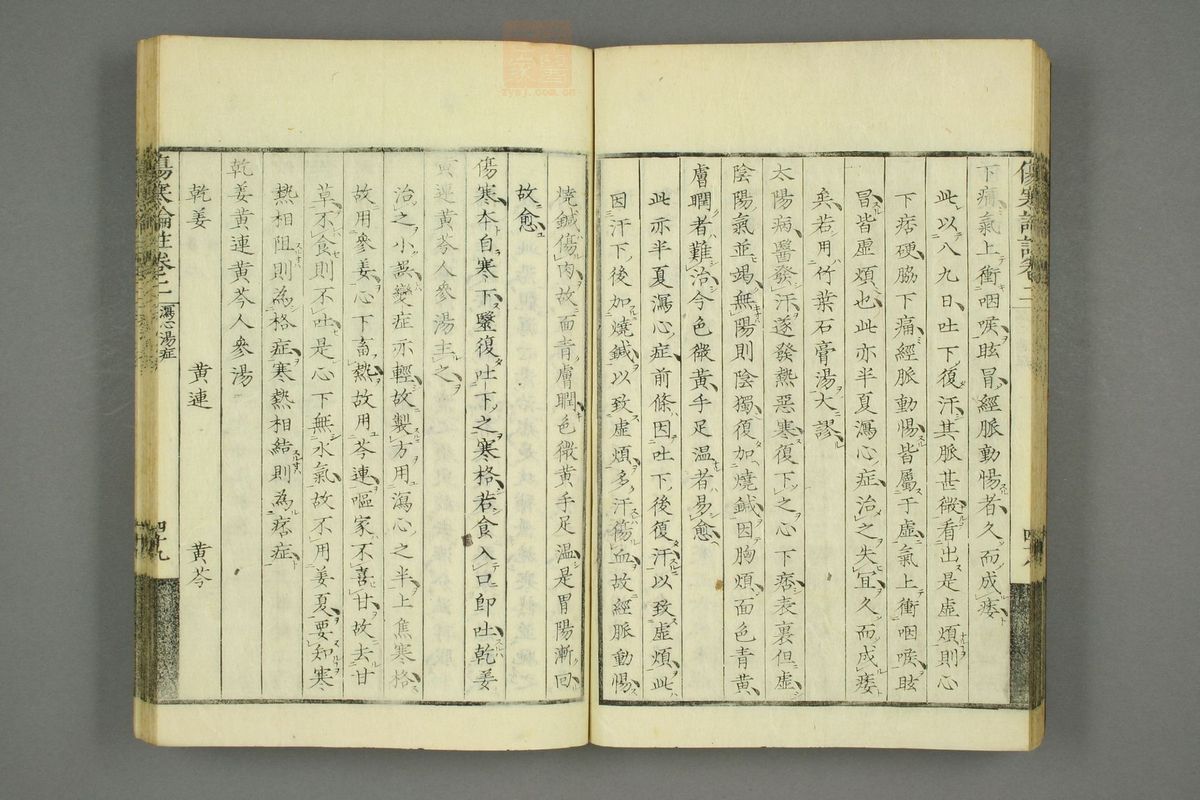 下痛氣上衝咽喉眩冒經脈動惕者久而成痿
此以八九日吐下復汗其脈甚微看出是虛煩則心
下痞硬脇下痛經脈動惕皆屬于虛氣上衝咽喉眩
冒皆虛煩也此亦半夏瀉心症治之失宜久而成痿
矣若用竹葉石膏湯大謬
太陽病醫發汗遂發熱惡寒復下之心下痞表裏但虛
陰陽氣並竭無陽則陰獨復加燒鍼因胸煩面色青黃
膚瞤者難治今色微黃手足溫者易愈
此亦半夏瀉心症前條因吐下後復汗以致虛煩此
因汗下後加燒鍼以致虛煩多汗傷血故經脈動惕
燒鍼傷肉故面青膚瞤色微黃手足溫是胃陽漸回
故愈
傷寒本自寒下醫復吐下之寒格若食入口即吐乾姜
黃連黃芩人參湯主之
治之小誤變症亦輕故製方用瀉心之半上焦寒格
故用參姜心下畜熱故用芩連嘔家不喜甘故去甘
草不食則不吐是心下無水氣故不用姜夏要知寒
熱相阻則為格症寒熱相結則為痞症
乾姜黃連黃芩人參湯
乾姜　黃連　黃芩
傷寒論註卷之二　瀉心湯症　四十九
zysj.com.cn